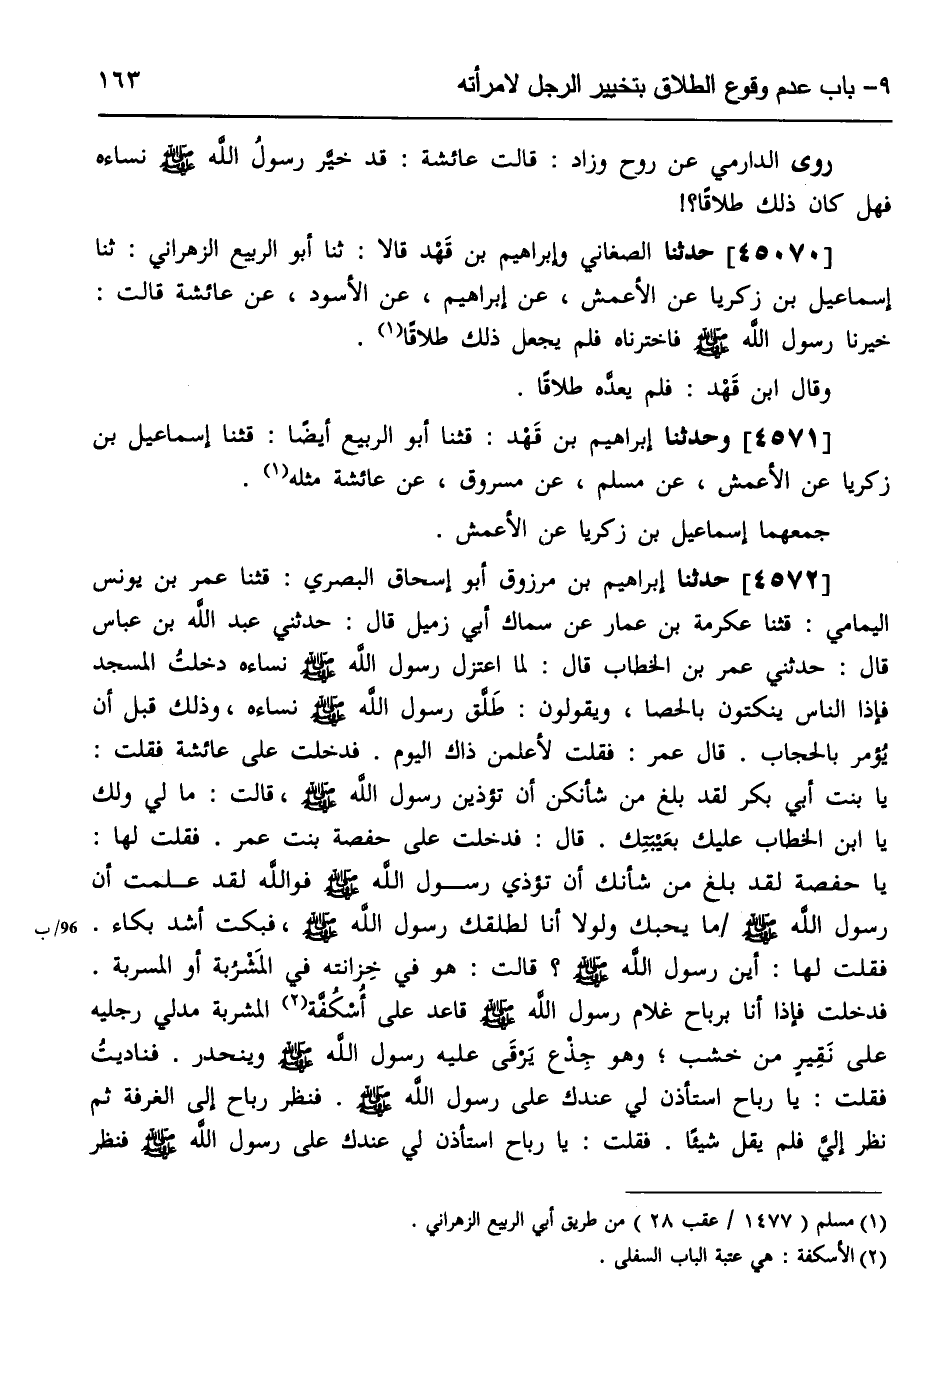 ٩- باب عدم وقوع الطلاق بتخيير الرجل لامرأته ١٦٣
روى الدارمي عن روح وزاد : قالت عائشة : قد خيَّر رسولُ اللَّه ﷺ نساءه
فهل كان ذلك طلاقًا؟!
[٤٥٠٧٠] حدثنا الصغاني وإبراهيم بن قَهْد قالا : ثنا أبو الربيع الزهراني : ثنا
إسماعيل بن زكريا عن الأعمش ، عن إبراهيم ، عن الأسود ، عن عائشة قالت :
خيرنا رسول اللَّه ﷺ فاخترناه فلم يجعل ذلك طلاقًا(١) .
وقال ابن قَهْد : فلم يعدَّه طلاقًا .
[٤٥٧١] وحدثنا إبراهيم بن قَهْد : قثنا أبو الربيع أيضًا : قثنا إسماعيل بن
زكريا عن الأعمش ، عن مسلم ، عن مسروق ، عن عائشة مثله(١) .
جمعهما إسماعيل بن زكريا عن الأعمش .
[٤٥٧٢] حدثنا إبراهيم بن مرزوق أبو إسحاق البصري : قثنا عمر بن يونس
اليمامي : قثنا عكرمة بن عمار عن سماك أبي زميل قال : حدثني عبد اللَّه بن عباس
قال : حدثني عمر بن الخطاب قال : لما اعتزل رسول اللَّه ﷺ نساءه دخلتُ المسجد
فإذا الناس ينكتون بالحصا ، ويقولون : طَلَّق رسول اللَّه ﷺ نساءه ، وذلك قبل أن
يُؤمر بالحجاب . قال عمر : فقلت لأعلمن ذاك اليوم . فدخلت على عائشة فقلت :
يا بنت أبي بكر لقد بلغ من شأنكن أن تؤذين رسول اللَّه ﷺ ، قالت : ما لي ولك
يا ابن الخطاب عليك بعَيْبَتِك . قال : فدخلت على حفصة بنت عمر . فقلت لها :
يا حفصة لقد بلغ من شأنك أن تؤذي رســول اللَّه ﷺ فواللَّه لقد عـلـمت أن
رسول اللَّه ﷺ /ما يحبك ولولا أنا لطلقك رسول اللَّه ﷺ ، فبكت أشد بكاء . 96/ب
فقلت لها : أين رسول اللَّه ﷺ ؟ قالت : هو في خِزانته في المَشْرُبة أو المسربة .
فدخلت فإذا أنا برباح غلام رسول اللَّه ﷺ قاعد على أُسْكُفَّة(٢) المشربة مدلي رجليه
على نَقِيرٍ من خشب ؛ وهو جِذْع يَرْقَى عليه رسول اللَّه ﷺ وينحدر . فناديتُ
فقلت : يا رباح استأذن لي عندك على رسول اللَّه ﷺ . فنظر رباح إلى الغرفة ثم
نظر إليَّ فلم يقل شيئًا . فقلت : يا رباح استأذن لي عندك على رسول اللَّه ﷺ فنظر
(١) مسلم ( ١٤٧٧ / عقب ٢٨ ) من طريق أبي الربيع الزهراني .
(٢) الأسكفة : هي عتبة الباب السفلى .